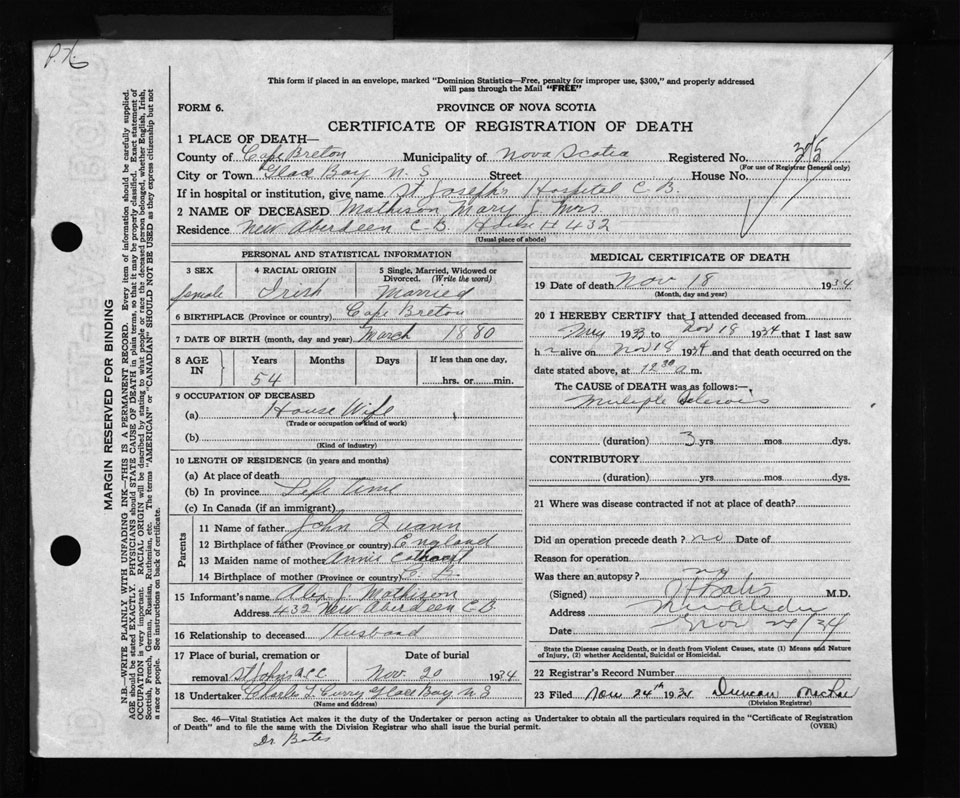 This form if placed in an envelope, marked "Dominion Statistics—Free, penalty for improper use, $300," and properly addressed
will pass through the Mail "FREE"
FORM 6.
PROVINCE OF NOVA SCOTIA
CERTIFICATE OF REGISTRATION OF DEATH
1 PLACE OF DEATH—
County of Cape Breton Municipality of Nova Scotia Registered No.
(For use of Registrar General only)
City or Town Glace Bay N. S Street House No.
If in hospital or institution, give name St Joseph's Hospital C B.
2 NAME OF DECEASED Mathison Mary J Mrs.
Residence New Aberdeen C-B. House # 432
(Usual place of abode)
MARGIN RESERVED FOR BINDING
N.B.—WRITE PLAINLY, WITH UNFADING INK—THIS IS A PERMANENT RECORD. Every item of information should be carefully supplied.
AGE should be stated EXACTLY. PHYSICIANS should STATE CAUSE OF DEATH in plain terms, so that it may be properly classified. Exact statement of
OCCUPATION is very important. RACIAL ORIGIN will be described by stating to what people or race the deceased person belonged, whether English, Irish,
Scottish, French, German, Russian, Ruthenian, etc. The terms "AMERICAN" or "CANADIAN" SHOULD NOT BE USED as they express citizenship but not
a race or people. See instructions on back of certificate.
PERSONAL AND STATISTICAL INFORMATION
3 SEX
female
4 RACIAL ORIGIN
Irish
5 Single, Married, Widowed or
Divorced. (Write the word)
Married
6 BIRTHPLACE (Province or country) Cape Breton
7 DATE OF BIRTH (month, day and year) March 1880
8 AGE IN
Years
54
Months
Days
If less than one day,
hrs. or min.
9 OCCUPATION OF DECEASED
(a) House Wife
(Trade or occupation or kind of work)
(b)
(Kind of industry)
10 LENGTH OF RESIDENCE (in years and months)
(a) At place of death
(b) In province Life time
(c) In Canada (if an immigrant)
Parents
11 Name of father John Quann
12 Birthplace of father (Province or country) England
13 Maiden name of mother Annie
14 Birthplace of mother (Province or country) C. B.
15 Informant's name Alex J. Mathison
Address 432 New Aberdeen C.B
16 Relationship to deceased Husband
17 Place of burial, cremation or
removal St Johns
Date of burial
Nov. 20 1934
18 Undertaker Charles T Curry Glace Bay N. S
(Name and address)
MEDICAL CERTIFICATE OF DEATH
19 Date of death Nov 18 1934
(Month, day and year)
20 I HEREBY CERTIFY that I attended deceased from
1933 to Nov 18 1934 that I last saw
h alive on Nov 18 1934 and that death occurred on the
date stated above, at 12 30 a.m.
The CAUSE of DEATH was as follows:—
Multiple Sclerosis
(duration) 3 yrs. mos. dys.
CONTRIBUTORY
(duration) yrs. mos. dys.
21 Where was disease contracted if not at place of death?
Did an operation precede death? no Date of
Reason for operation
Was there an autopsy? no
(Signed) M.D.
Address
Date Nov 24/34
State the Disease causing Death, or in death from Violent Causes, state (1) Means and Nature
of Injury, (2) whether Accidental, Suicidal or Homicidal.
22 Registrar's Record Number
23 Filed Nov 24th 1934 Duncan
(Division Registrar)
Sec. 46—Vital Statistics Act makes it the duty of the Undertaker or person acting as Undertaker to obtain all the particulars required in the "Certificate of Registration
of Death" and to file the same with the Division Registrar who shall issue the burial permit.
(OVER)
Dr Bates